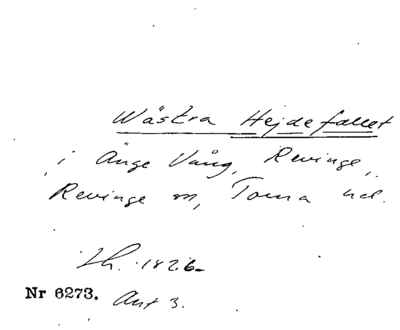 Wästra Hejdefallet
i Ånge Vång, Revinge,
Revinge sn, Torna hd.
Lh. 1826
Nr 6273. Akt 3.